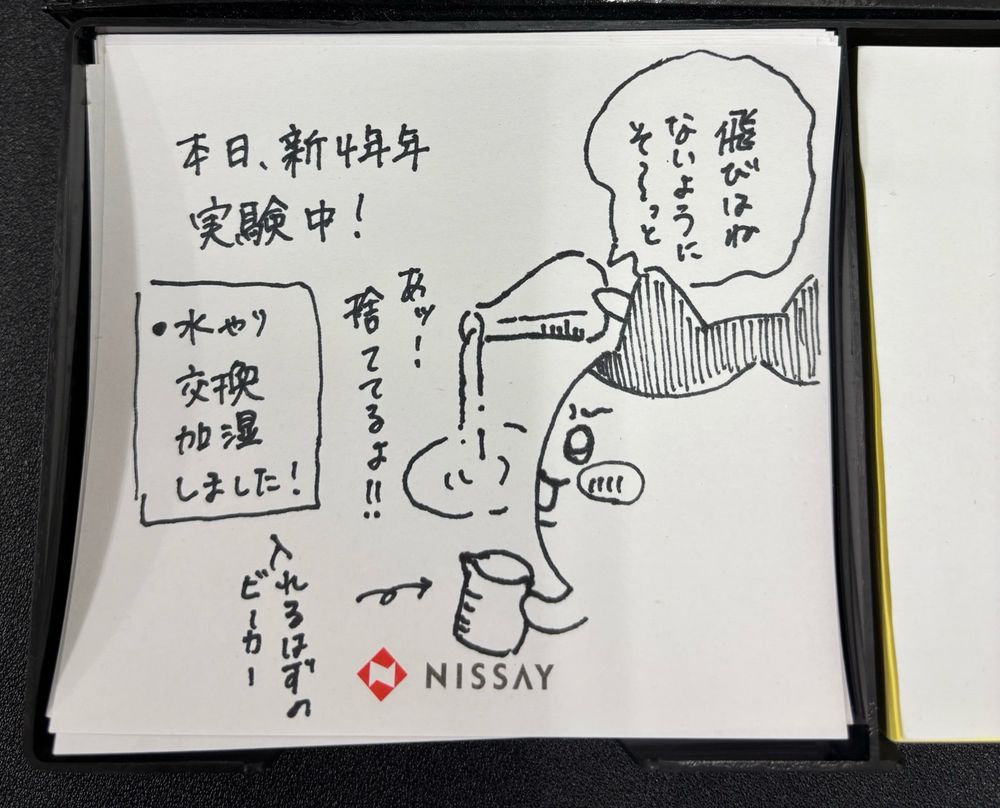 本日、新4年年
実験中!
飛びはね
ないように
そ〜っと
あッ!
捨ててるよ!!
・水やり
交換
加湿
しました!
入れるはずの
ビーカー
NISSAY